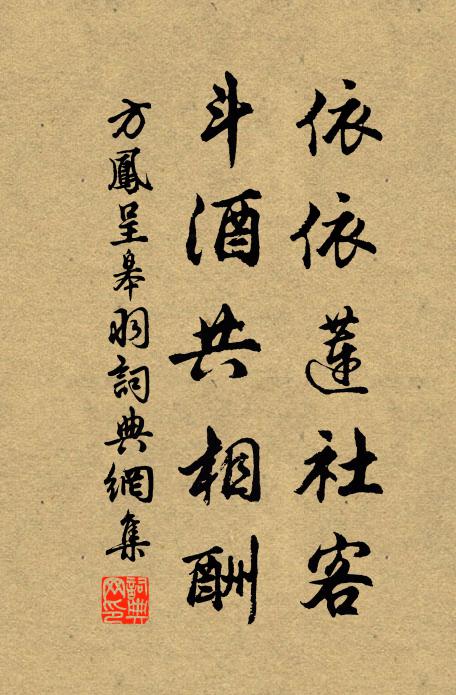 依依蓮社客
斗酒共相酬
方鳳呈皋羽詞典網集
詞典網印